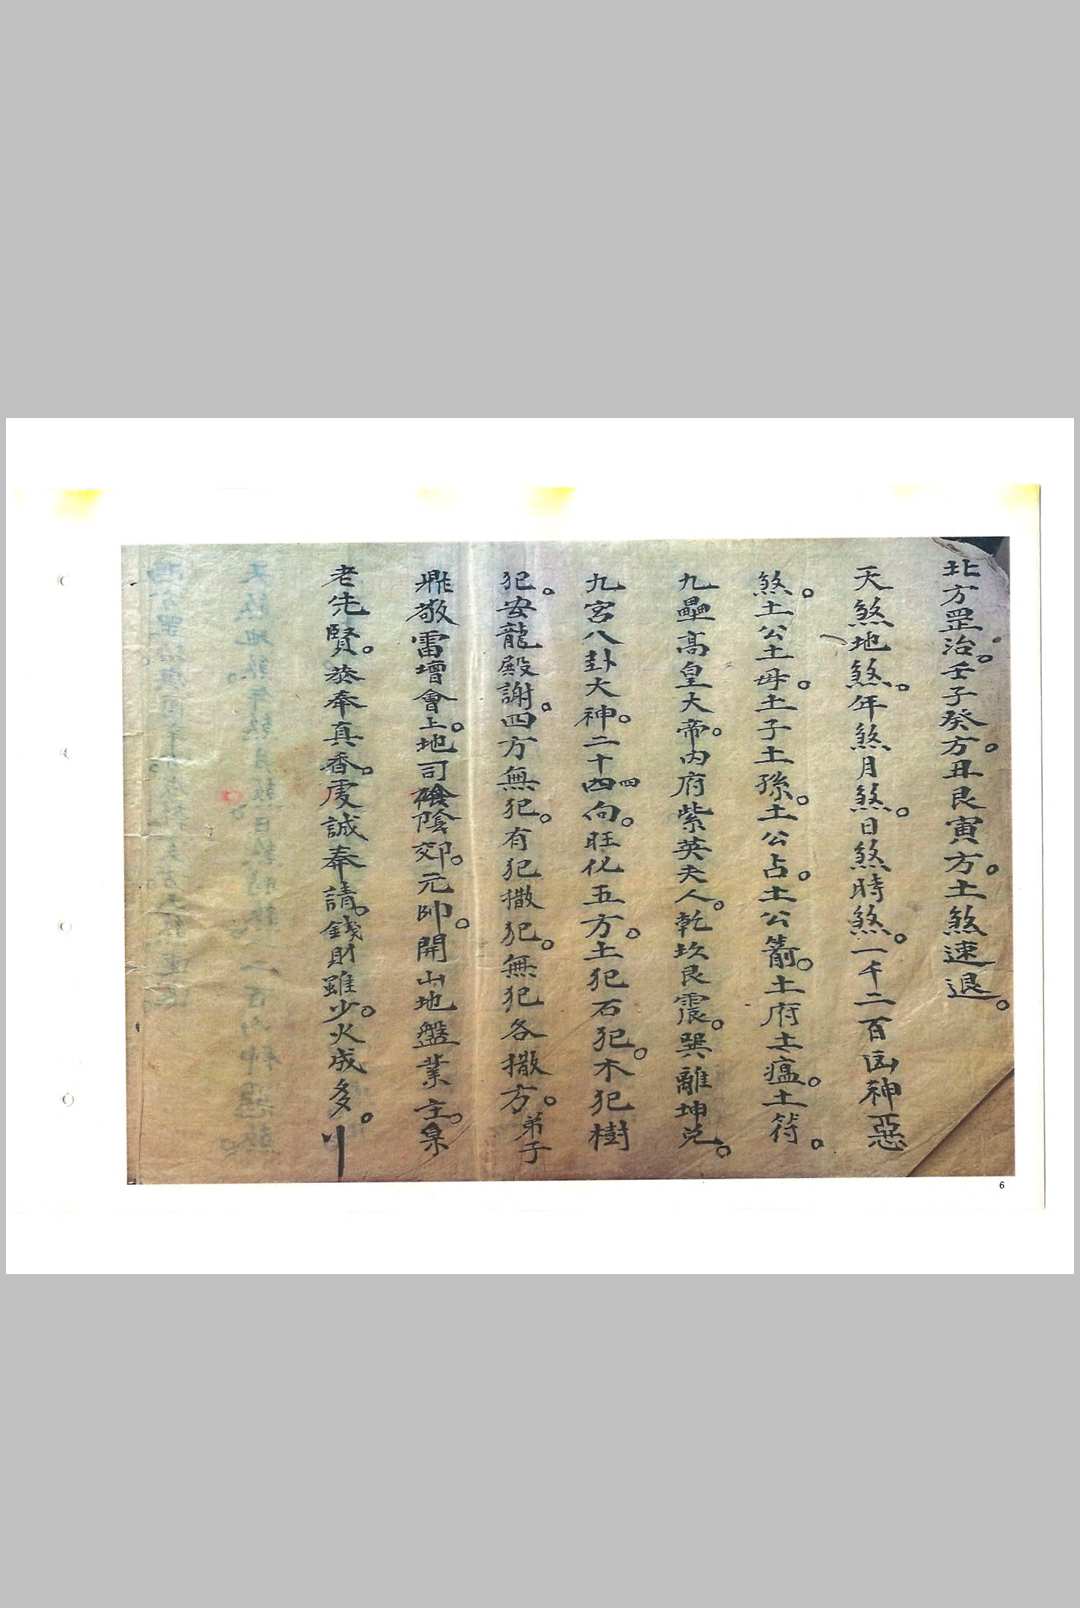 北方罡治。壬子癸方。丑艮寅方。土煞速退。
天煞地煞。年煞月煞。日煞時煞。一千二百凶神惡
煞。土公土母。土子土孫。土公占土公箭。土府土瘟。土符。
九壘高皇大帝。內府紫英夫人。乾坎艮震。巽離坤兌。
九宮八卦大神。二十四四向。旺化五方。土犯石犯。木犯樹
犯。安龍殿謝。四方無犯。有犯撒犯。無犯各撒方。弟子
鼎敬雷壇會上。地司陰郊。元帥。開山地盤業主。
老先賢。恭奉真香。虔誠奉請。錢財雖少。火成多。
6